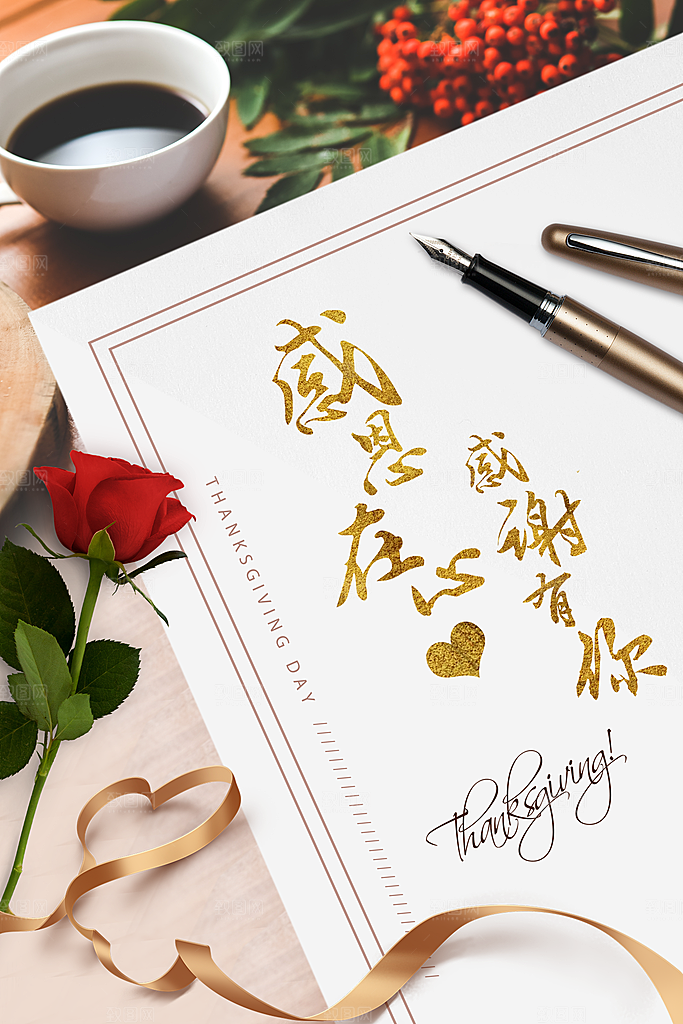 感恩在心
感谢有你
THANKSGIVING DAY
Thanksgiving!